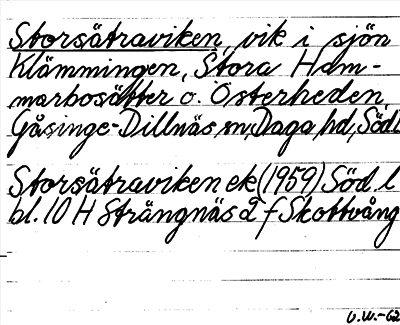 Storsätraviken, vik i sjön
Klämmingen, Stora Ham-
marbosätter o. Österheden,
Gåsinge-Dillnäs sn, Daga hd, Södl
Storsätraviken ek (1959) Söd. l
bl. 10 H Strängnäs å f Skottvång
U.W.-62